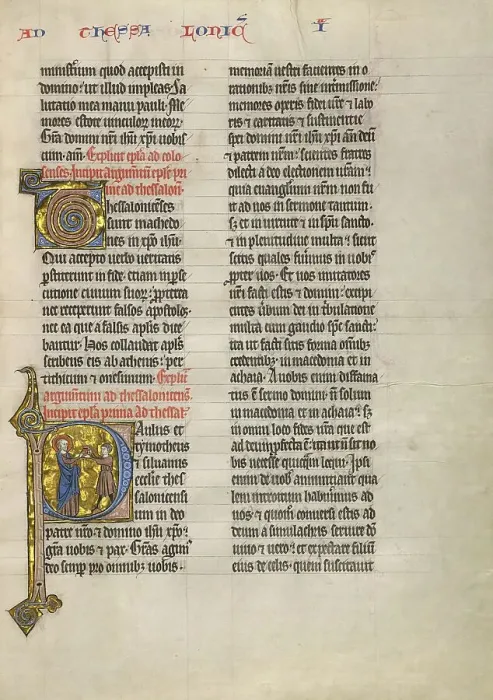 AD THESSA LONIC I
ministerium quod accepisti in
domino: ut illud impleas. Sa
lutatio mea manu pauli. Me
mores estote vinculorum meorum.
Gratia domini nostri ihu xpi vobis
cum. am. Explicit epla ad colo
senses. Incipit argumentum eple pri
me ad thessaloni
Thessalonicenses
sunt machedo
nes in xpo ihu.
Qui accepto verbo veritatis
perstiterunt in fide. etiam in perse
cutione civium suorum: preterea
nec receperunt falsos apostolos
nec ea que a falsis aplis dice
bantur. Hos collaudat apls
scribens eis ab athenis: per
tithicum et onesimum. Explicit
argumentum ad thessalonicens.
Incipit epla prima ad thessal
Paulus et
tymotheus
et silvanus
ecclie thes
salonicensi
um in deo
patre nro et domino ihu xpo:
gra vobis et pax. Gras agim
deo semp pro omnibus vobis.
memoriam vestri facientes in o
rationibus nris sine intermissione:
memores operis fidei vre et labo
ris et caritatis et sustinentie
spei domini nri ihu xpi ante deum
et patrem nrm: scientes fratres
dilecti a deo electionem vram:
quia evangelium nrm non fu
it ad vos in sermone tantum.
sz et in virtute et in spu sancto.
et in plenitudine multa: sicut
scitis quales fuimus in vobis
propter vos. Et vos imitatores
nri facti estis et domini: excipi
entes verbum dei in tribulatione
multa cum gaudio spc sancti:
ita ut facti sitis forma omnibus
credentibus. in macedonia et in
achaia. A vobis enim diffama
tus est sermo domini. non solum
in macedonia et in achaia: sz
in omni loco fides vra que est
ad deum profecta est: ita ut non sit no
bis necesse quicquam loqui. Ipsi
enim de vobis annuntiant qua
lem introitum habuimus ad
vos: et quomodo conversi estis ad
deum a simulachris servire deo
vivo et vero: et expectare filium
eius de celis. quem suscitavit